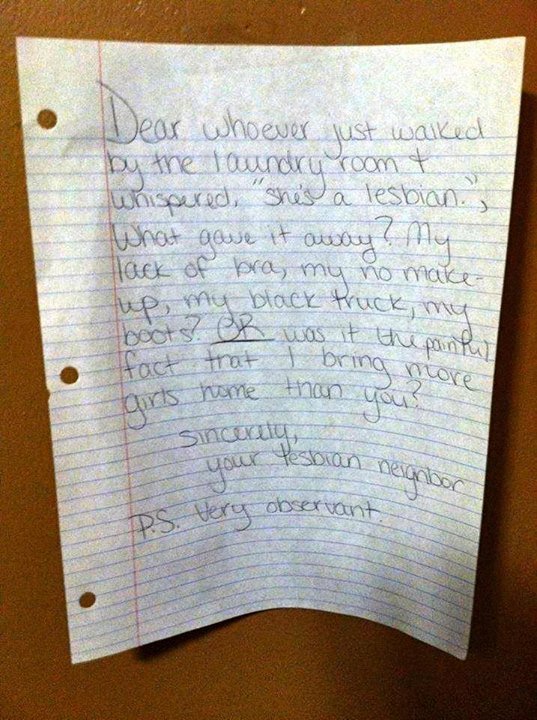 Dear whoever just walked
by the laundry room +
whispered, "she's a lesbian.",
What gave it away? My
lack of bra, my no make-
up, my black truck, my
boots? OR was it the painful
fact that I bring more
girls home than you?
sincerely,
your lesbian neighbor
P.S. Very observant.